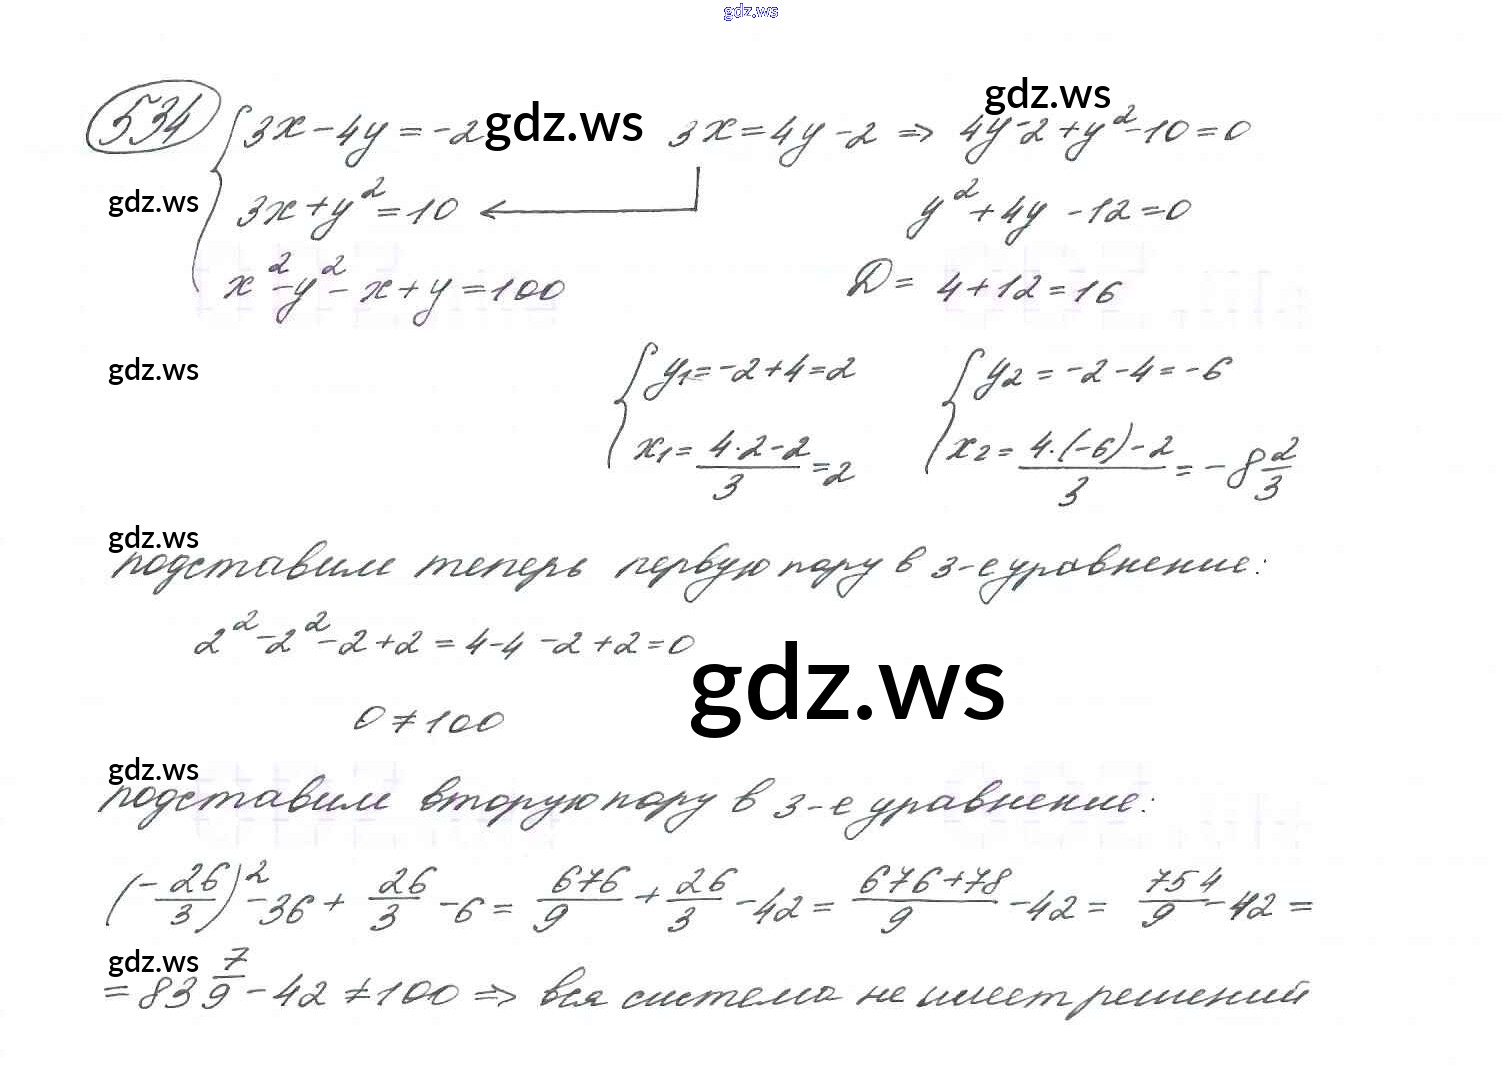 gdz.ws
534 { 3x - 4y = -2 gdz.ws 3x = 4y - 2 ⇒ 4y - 2 + y² - 10 = 0 gdz.ws
gdz.ws 3x + y² = 10 ← y² + 4y - 12 = 0
x² - y² - x + y = 100 D = 4 + 12 = 16
gdz.ws { y₁ = -2 + 4 = 2 { y₂ = -2 - 4 = -6
x₁ = (4·2-2)/3 = 2 x₂ = (4·(-6)-2)/3 = -8 2/3
gdz.ws
подставим теперь первую пару в 3-е уравнение:
2² - 2² - 2 + 2 = 4 - 4 - 2 + 2 = 0
gdz.ws
0 ≠ 100
gdz.ws
подставим вторую пару в 3-е уравнение:
(-26/3)² - 36 + 26/3 - 6 = 676/9 + 26/3 - 42 = (676+78)/9 - 42 = 754/9 - 42 =
gdz.ws
= 83 7/9 - 42 ≠ 100 ⇒ вся система не имеет решений